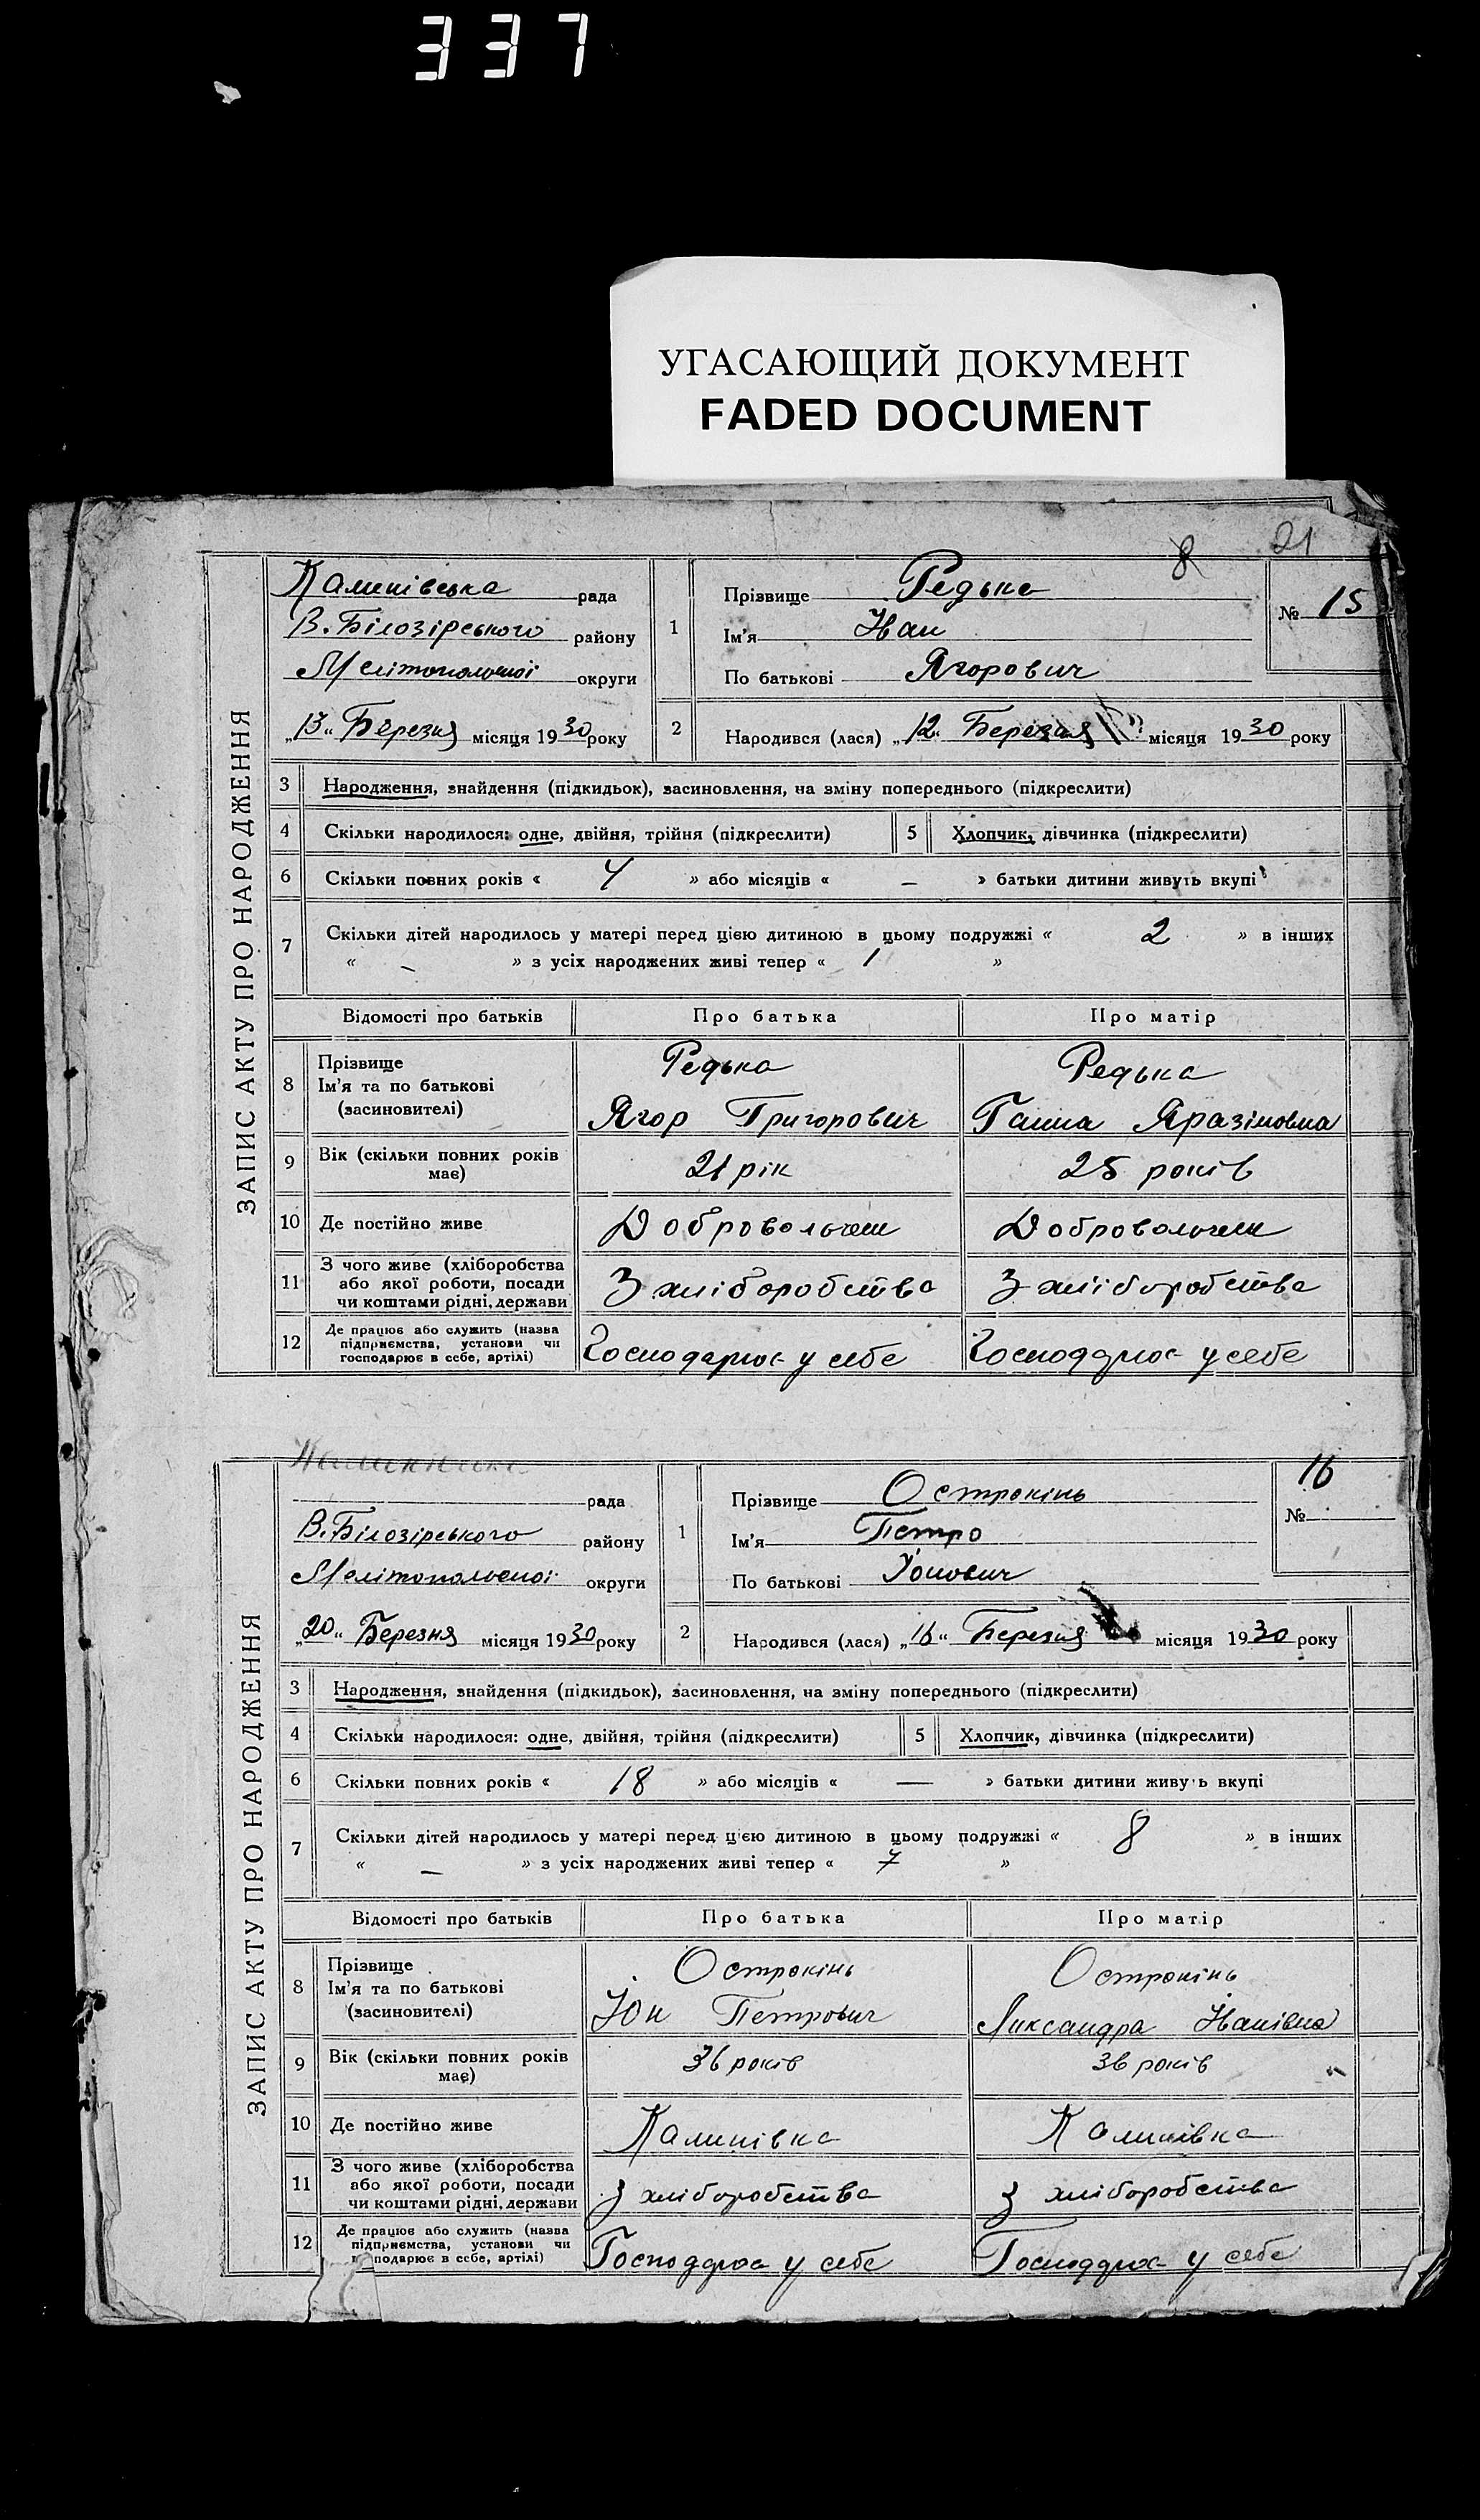 337
УГАСАЮЩИЙ ДОКУМЕНТ
FADED DOCUMENT
8 21
ЗАПИС АКТУ ПРО НАРОДЖЕННЯ
Калинівська рада
В. Білозірського району
Мелітопольської округи
„13“ Березня місяця 1930 року
1 Прізвище Редька
Ім'я Иван
По батькові Ягорович
№ 15
2 Народився (лася) „12“ Березня місяця 1930 року
3 Народження, знайдення (підкидьок), засиновлення, на зміну попереднього (підкреслити)
4 Скільки народилося: одне, двійня, трійня (підкреслити) 5 Хлопчик, дівчинка (підкреслити)
6 Скільки повних років « 4 » або місяців « — » батьки дитини живуть вкупі
7 Скільки дітей народилось у матері перед цією дитиною в цьому подружжі « 2 » в інших
« - » з усіх народжених живі тепер « 1 »
Відомості про батьків Про батька Про матір
8 Прізвище
Ім'я та по батькові
(засиновителі)
Редька
Ягор Григорович
Редька
Ганна
9 Вік (скільки повних років
має)
21 рік 25 років
10 Де постійно живе
11 З чого живе (хліборобства
або якої роботи, посади
чи коштами рідні, держави
З хліборобства З хліборобства
12 Де працює або служить (назва
підприємства, установи чи
господарює в себе, артілі)
Господарює у себе Господарює у себе
ЗАПИС АКТУ ПРО НАРОДЖЕННЯ
Калинівська
рада
В. Білозірського району
Мелітопольської округи
„20“ Березня місяця 1930 року
1 Прізвище Острокінь
Ім'я Петро
По батькові Йонович
16
№
2 Народився (лася) „16“ Березня місяця 1930 року
3 Народження, знайдення (підкидьок), засиновлення, на зміну попереднього (підкреслити)
4 Скільки народилося: одне, двійня, трійня (підкреслити) 5 Хлопчик, дівчинка (підкреслити)
6 Скільки повних років « 18 » або місяців « — » батьки дитини живу ь вкупі
7 Скільки дітей народилось у матері перед цією дитиною в цьому подружжі « 8 » в інших
« - » з усіх народжених живі тепер « 7 »
Відомості про батьків Про батька Про матір
8 Прізвище
Ім'я та по батькові
(засиновителі)
Острокінь
Йон Петрович
Острокінь
Ликсандра Иванівна
9 Вік (скільки повних років
має)
36 років 36 років
10 Де постійно живе Калинівка Калинівка
11 З чого живе (хліборобства
або якої роботи, посади
чи коштами рідні, держави
З хліборобства З хліборобства
12 Де працює або служить (назва
підприємства, установи чи
господарює в себе, артілі)
Господарює у себе Господарює у себе